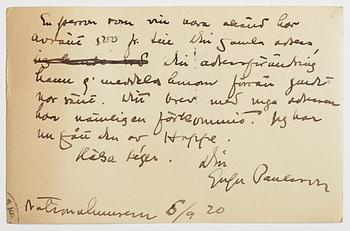 En person som vill vara okänd har
avsänt 500 fr. till Din gamla adress
Din adressförändring
hann ej meddelas honom förrän godt
var sänt. Ditt brev med nya adressen
har nämligen förkommit. Jag har
nu fått den av Hoppe.
Hälsa Céger. Din
Gregor Paulsson
Nationalmuseum 6/9 20